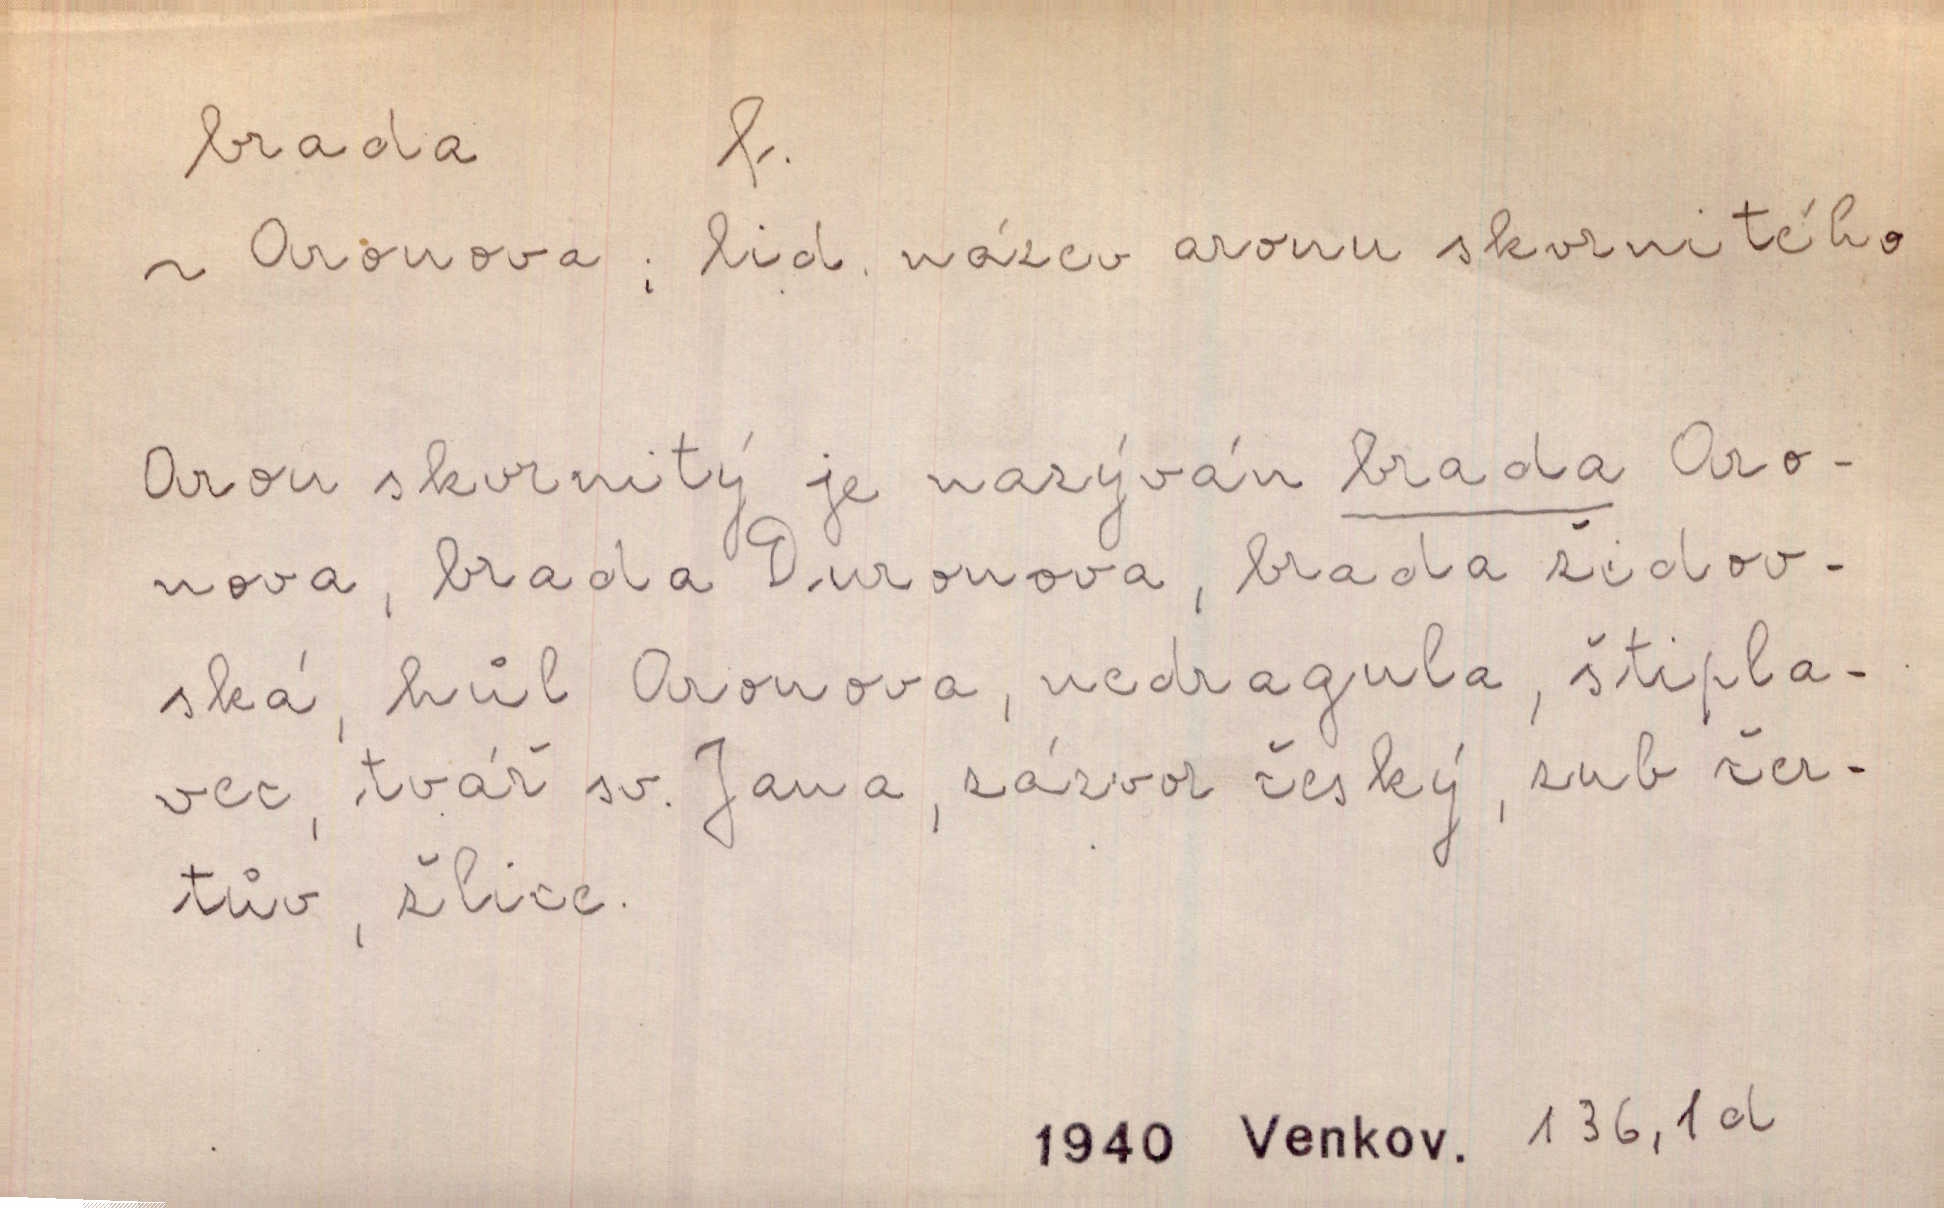 brada f.
~ Aronova; lid. název aronu skvrnitého
Aron skvrnitý je nazýván brada Aro-
nova, brada Duronova, brada židov-
ská, hůl Aronova, nedragula, štipla-
vec, tvář sv. Jana, zázvor český, zub čer-
tův, žlice.
1940 Venkov. 136,1d